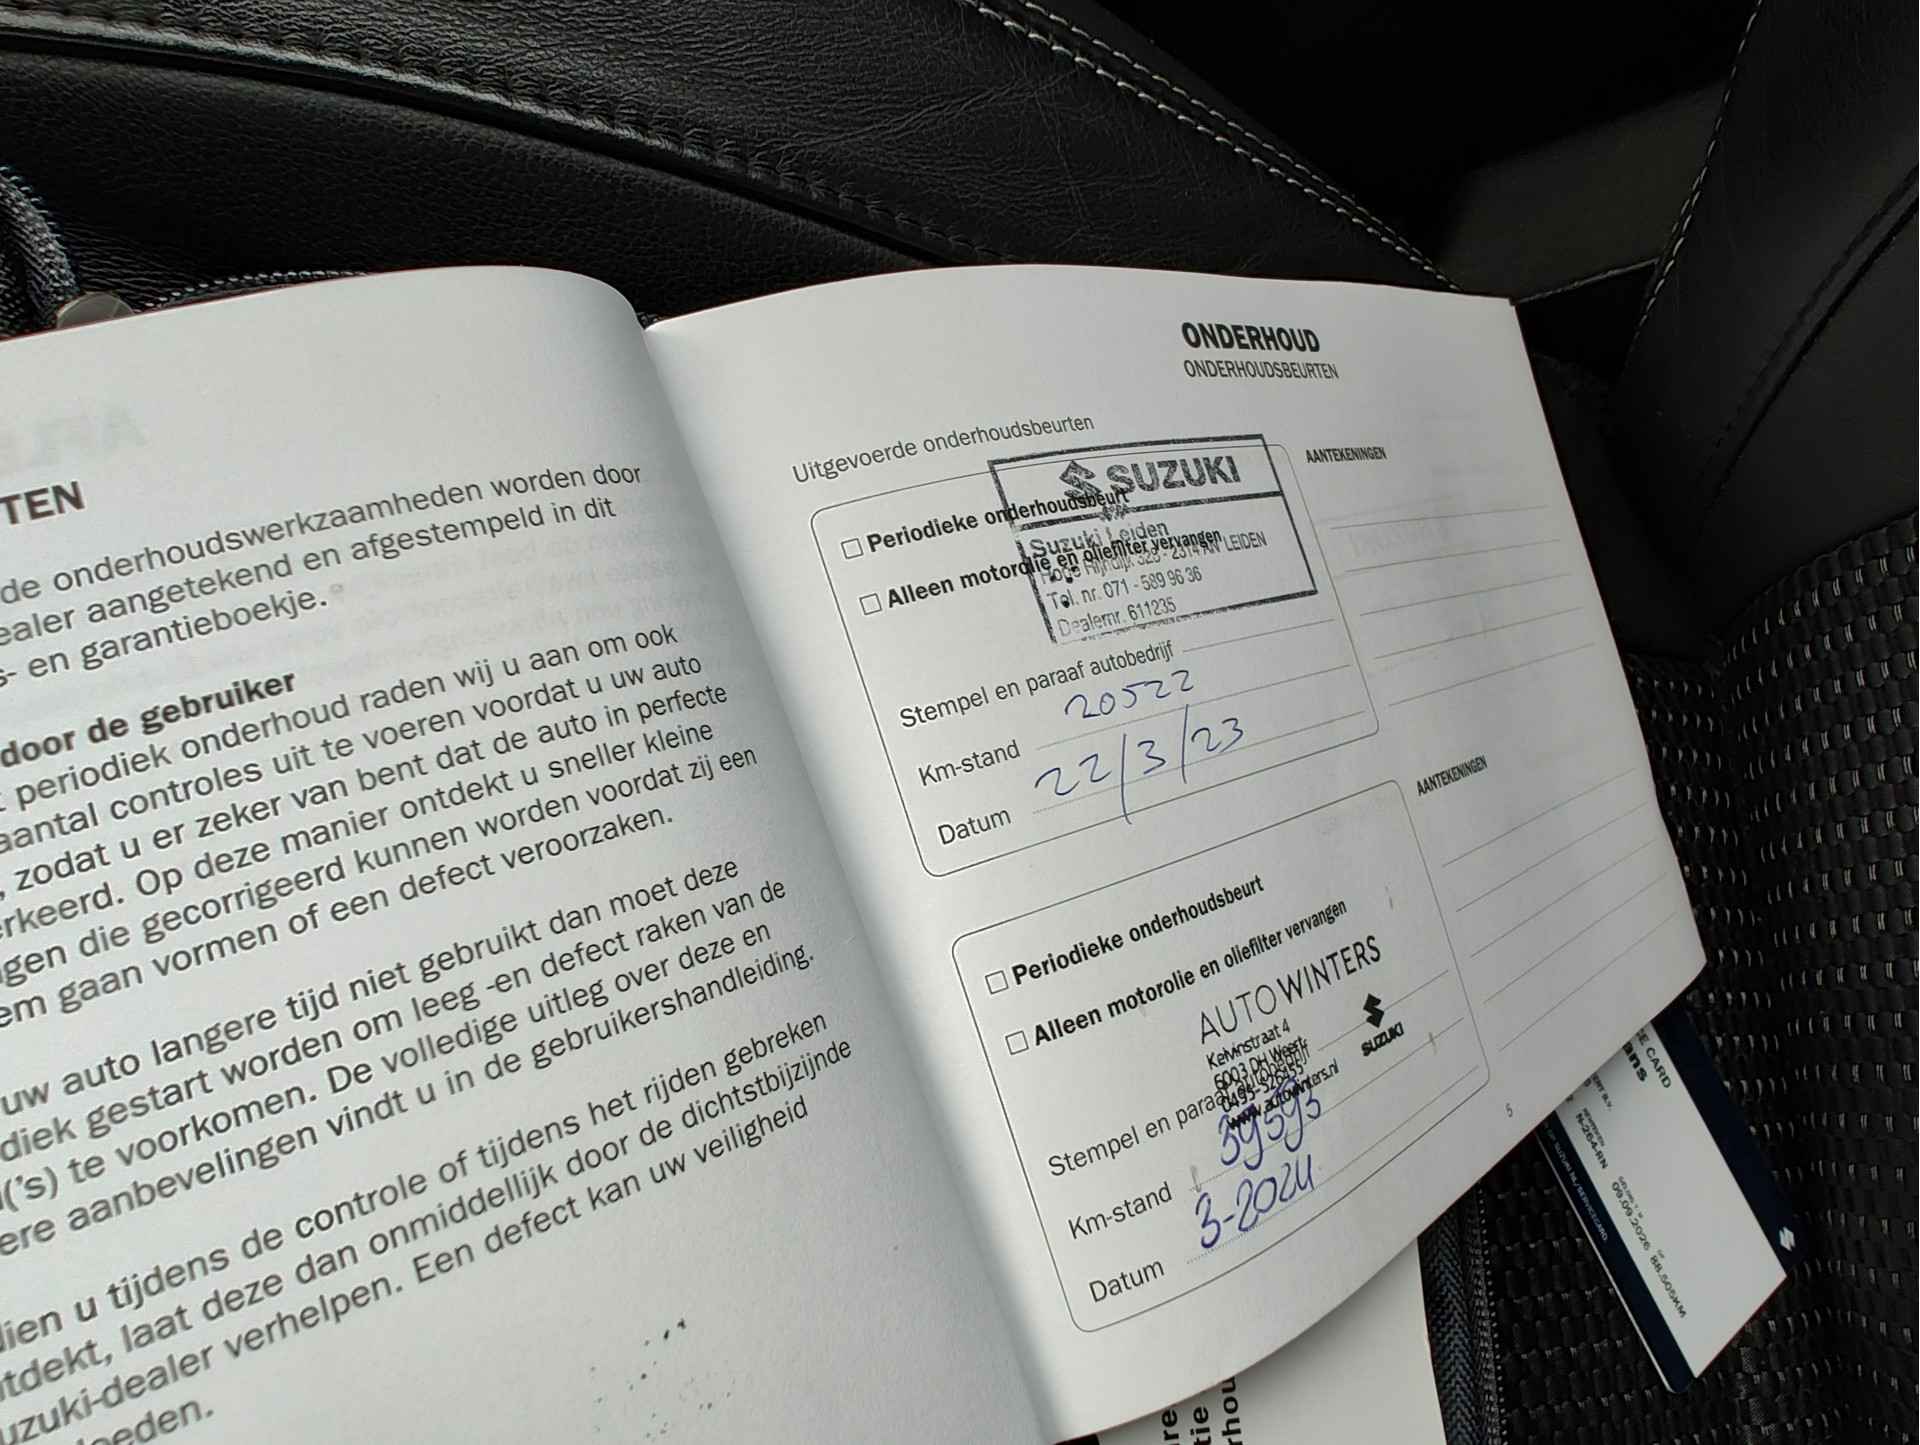 TEN
de onderhoudswerkzaamheden worden door
ealer aangetekend en afgestempeld in dit
s- en garantieboekje.
door de gebruiker
t periodiek onderhoud raden wij u aan om ook
aantal controles uit te voeren voordat u uw auto
, zodat u er zeker van bent dat de auto in perfecte
rkeerd. Op deze manier ontdekt u sneller kleine
ngen die gecorrigeerd kunnen worden voordat zij een
em gaan vormen of een defect veroorzaken.
uw auto langere tijd niet gebruikt dan moet deze
diek gestart worden om leeg -en defect raken van de
('s) te voorkomen. De volledige uitleg over deze en
ere aanbevelingen vindt u in de gebruikershandleiding.
dien u tijdens de controle of tijdens het rijden gebreken
ntdekt, laat deze dan onmiddellijk door de dichtstbijzijnde
uzuki-dealer verhelpen. Een defect kan uw veiligheid
oeden.
ONDERHOUD
ONDERHOUDSBEURTEN
Uitgevoerde onderhoudsbeurten
AANTEKENINGEN
SUZUKI
Periodieke onderhoudsbeurt
Suzuki Leiden
Alleen motorolie en oliefilter vervangen
Hoge Rijndijk 329 - 2314 AN LEIDEN
Tel. nr. 071 - 589 96 36
Dealernr. 611235
Stempel en paraaf autobedrijf
Km-stand 20522
Datum 22/3/23
AANTEKENINGEN
Periodieke onderhoudsbeurt
Alleen motorolie en oliefilter vervangen
AUTOWINTERS
Kelvinstraat 4
6003 DH Weert
0495-526455
www.autowinters.nl
SUZUKI
Stempel en paraaf autobedrijf
Km-stand 39593
Datum 3-2024
5
CARD
N-264-RN
09.09.2026 88.505KM